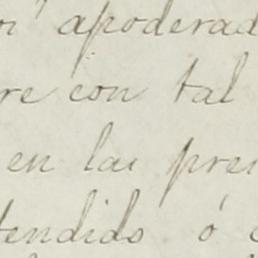 apoderad
re con tal
en las pre
tendido ó